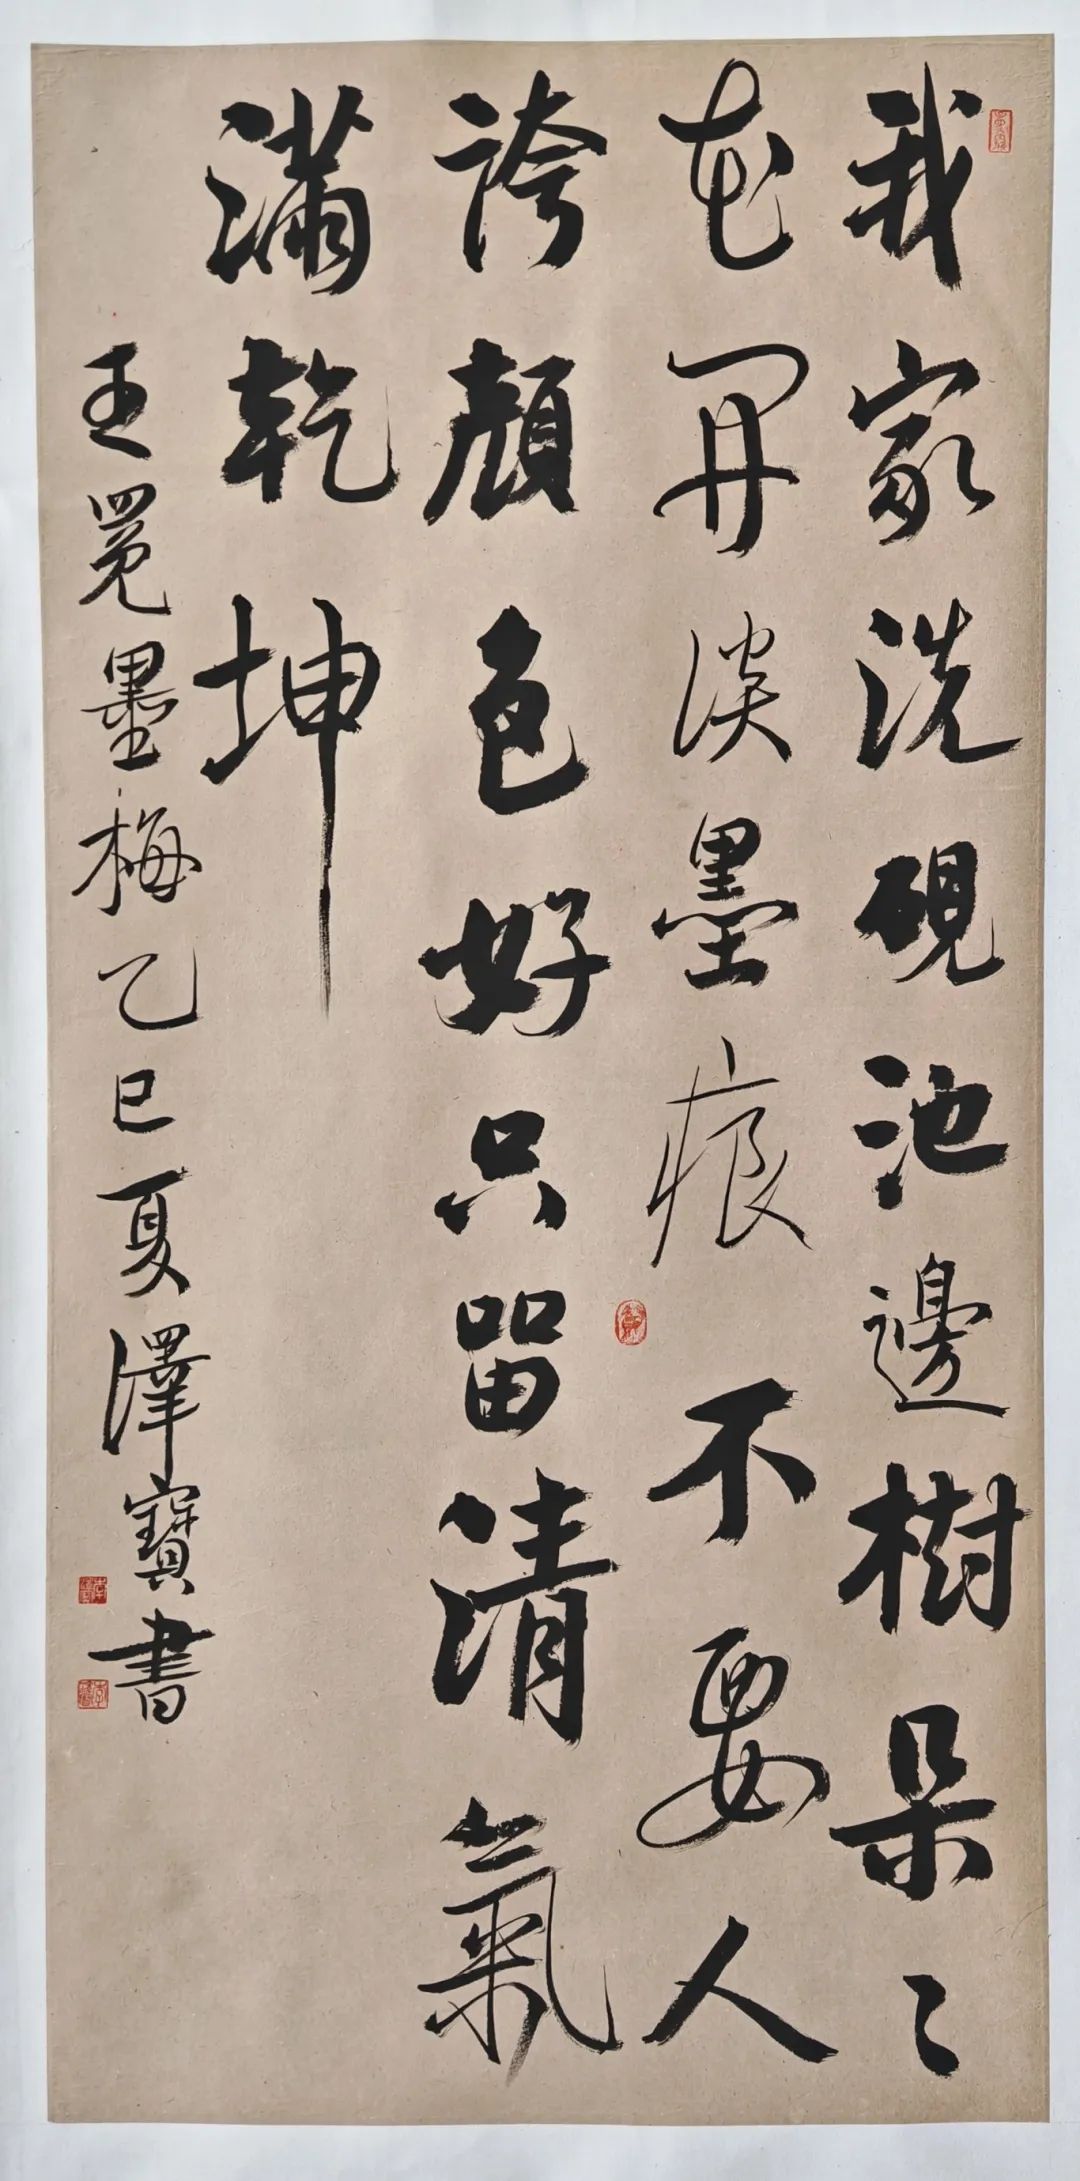 我家洗硯池邊樹朵〻
花開淡墨痕不要人
誇顏色好只留清氣
滿乾坤
王冕墨梅乙巳夏澤寶書